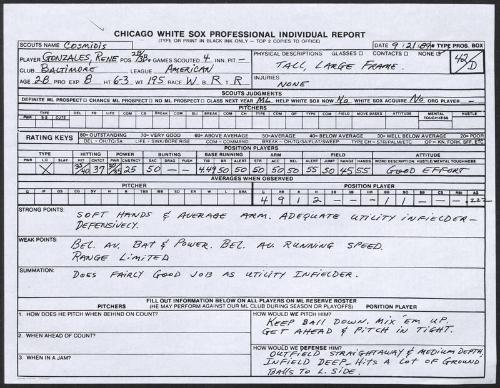 CHICAGO WHITE SOX PROFESSIONAL INDIVIDUAL REPORT
(TYPE OR PRINT IN BLACK INK ONLY – TOP 2 COPIES TO OFFICE)
SCOUTS NAME COSMIDIS DATE 9/21/89 TYPE PROS. BOX
PLAYER GONZALES, RENE POS GAMES SCOUTED 4 INN. PIT – PHYSICAL DESCRIPTIONS GLASSES CONTACTS
CLUB BALTIMORE LEAGUE AMERICAN TALL, LARGE FRAME.
AGE 28 PRO EXP 8 HT 6-3 WT 195 RACE W B R T R INJURIES NONE
SCOUTS JUDGMENTS
DEFINITE ML PROSPECT CHANCE ML PROSPECT NO ML PROSPECT CLASS NEXT YEAR ML HELP WHITE SOX NOW NO WHITE SOX ACQUIRE NO ORG PLAYER –
PITCHERS
RATING KEYS 80 – OUTSTANDING 70 – VERY GOOD 60 – ABOVE AVERAGE 50 – AVERAGE 40 – BELOW AVERAGE 30 – WELL BELOW AVERAGE 20 – POOR
POSITION PLAYERS
HITTING POWER BUNTING BASE RUNNING ARM FIELD ATTITUDE
X 37 25 50 – – 4.49 50 50 50 50 55 50 45 55 GOOD EFFORT
AVERAGES WHEN OBSERVED
PITCHER POSITION PLAYER
4 9 1 2 – – – 1 1 – – .222
STRONG POINTS: SOFT HANDS & AVERAGE ARM. ADEQUATE UTILITY INFIELDER –
DEFENSIVELY.
WEAK POINTS: BEL. AV. BAT & POWER. BEL. AV. RUNNING SPEED.
RANGE LIMITED
SUMMATION: DOES FAIRLY GOOD JOB AS UTILITY INFIELDER.
FILL OUT INFORMATION BELOW ON ALL PLAYERS ON ML RESERVE ROSTER
PITCHERS (HE MAY PERFORM AGAINST OUR ML CLUB DURING SEASON OR PLAYOFFS) POSITION PLAYER
1. HOW DOES HE PITCH WHEN BEHIND ON COUNT?
HOW WOULD WE PITCH HIM?
KEEP BALL DOWN. MIX 'EM UP.
GET AHEAD & PITCH IN TIGHT.
2. WHEN AHEAD OF COUNT?
HOW WOULD WE DEFENSE HIM?
OUTFIELD STRAIGHTAWAY & MEDIUM DEPTH,
3. WHEN IN A JAM?
INFIELD DEEP. HITS A LOT OF GROUND
BALLS TO L. SIDE.